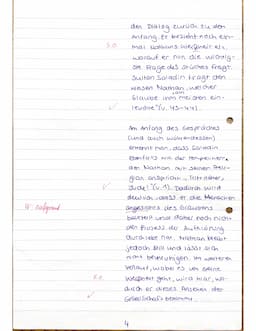 den Dialog zurück zu dem
Anfang, er bezieht noch ein-
mal Nathans Weisheit ein,
worauf er nun die wichtig-
ste Frage des Stückes fragt.
Sultan Saladin fragt den
weisen Nathan, welcher
Glaube ihm am meisten ein-
leuchte" (V. 43-44).
s.o.
Am Anfang des Gespräches
(und auch währenddessen)
erkennt man, dass Saladin
Ebenfalls wie der Tempelherr,
den Nathan auf seinen
anspricht: „Tritt näher,
Jude!" (V. 1). Dadurch wird
deutlich, dass er die Menschen
W aufgrund
angesichts des Glaubens
und daher noch nicht
den Prozess der Aufklärung
durchlebt hat. Nathan bleibt
jedoch still und lässt sich
nicht beunruhigen. Im weiteren
Verlauf, wobei es um seine
Weisheit geht, wird klar,
durch er dieses Ansehen der
Gesellschaft bekommt.
R.o.
4